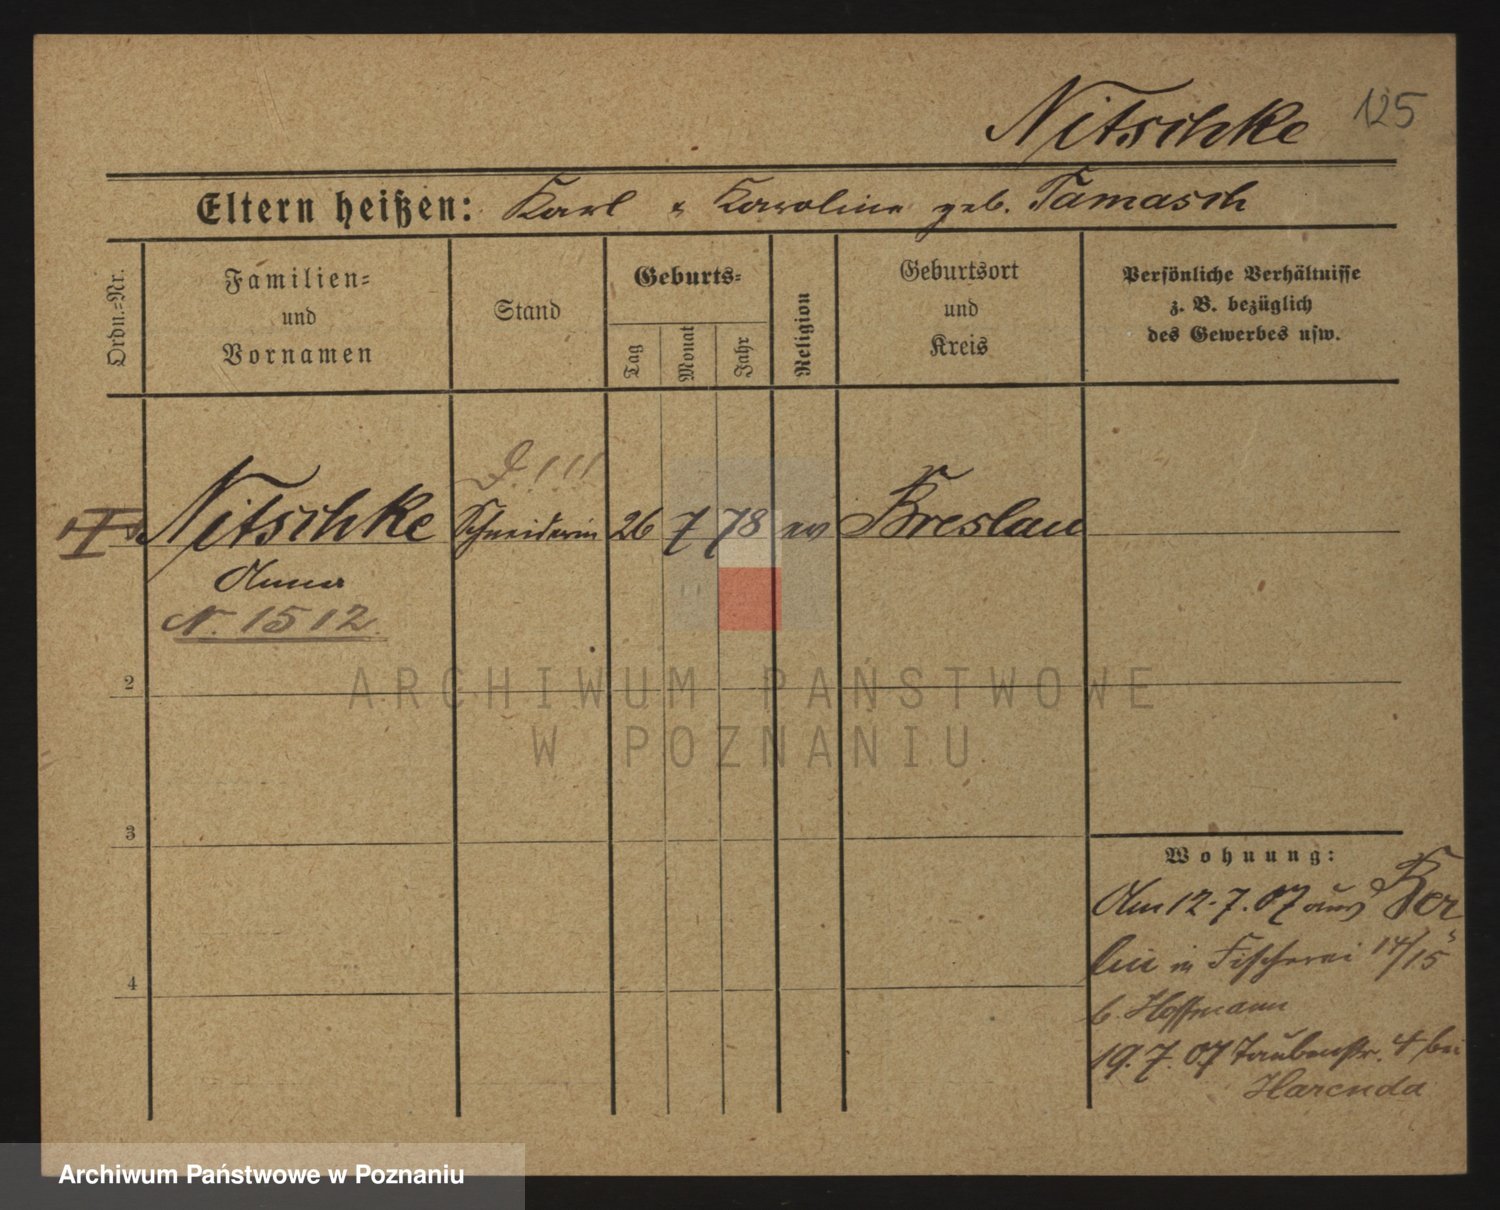 Nitschke 125
Eltern heißen: Karl u Karoline geb. Tamasch
Ordn.=Nr.
Familien=
und
Vornamen
Stand
Geburts=
Tag
Monat
Jahr
Religion
Geburtsort
und
Kreis
Persönliche Verhältnisse
z. B. bezüglich
des Gewerbes usw.
D. !!!
I Nitschke Schneiderin 26 7 78 ev Breslau
Anna
N. 1512
2
3
4
Wohnung:
Am 12.7.07 aus Ber
lin in Fischerei 14/15
b. Hoffmann
19.7.07 Taubenstr. 4 bei
Harenda
ARCHIWUM PAŃSTWOWE
W POZNANIU
Archiwum Państwowe w Poznaniu